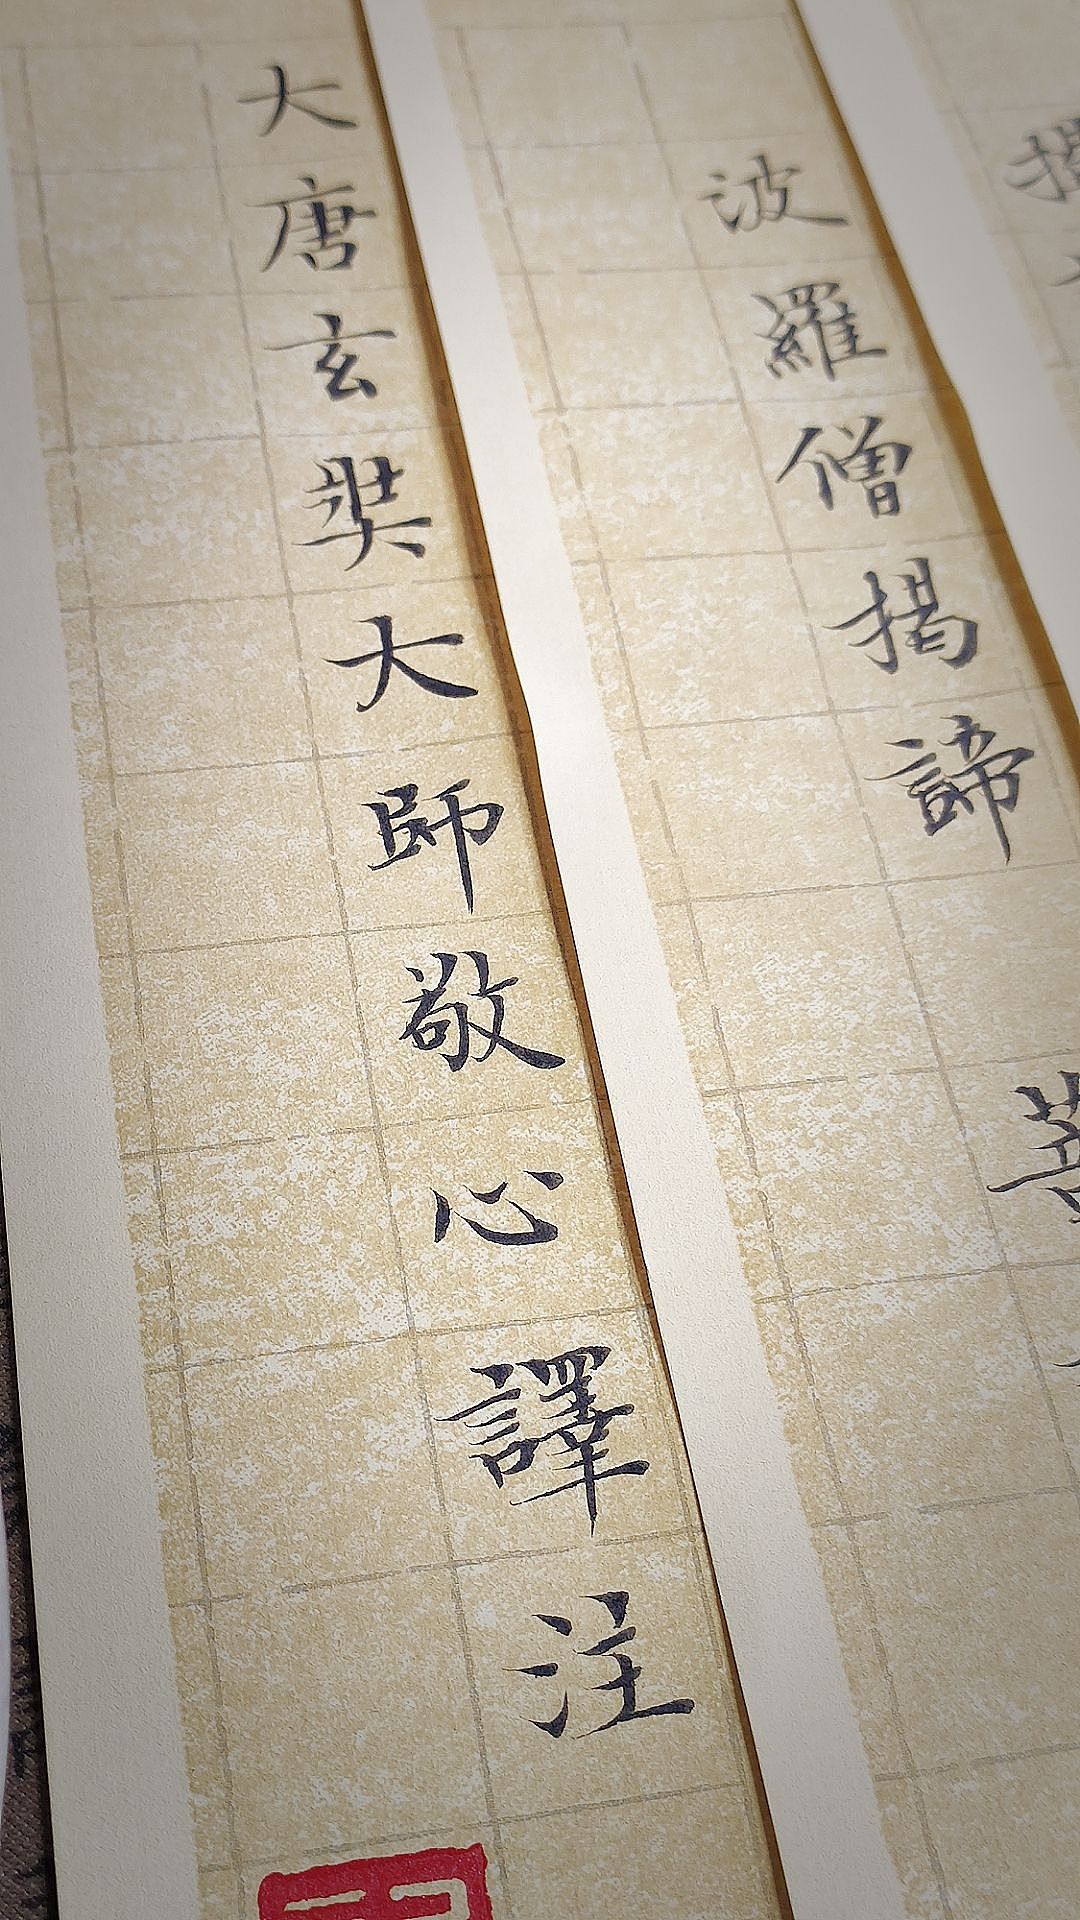 波羅僧揭諦 菩
大唐玄奘大師敬心譯注